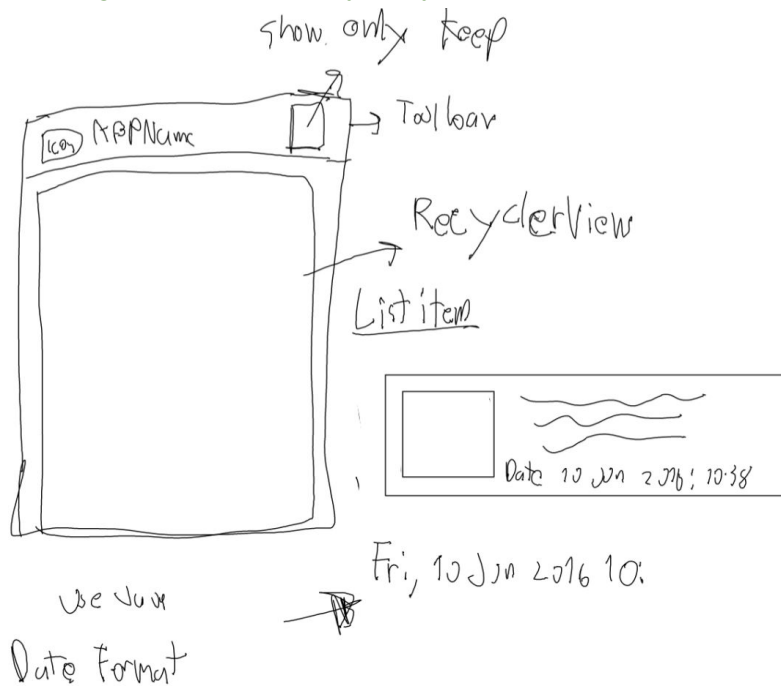 show only keep
Icon APPName
Toolbar
RecyclerView
List item
Date 10 Jun 2016: 10:38
Fri, 10 Jun 2016 10:
use Java
Date Format